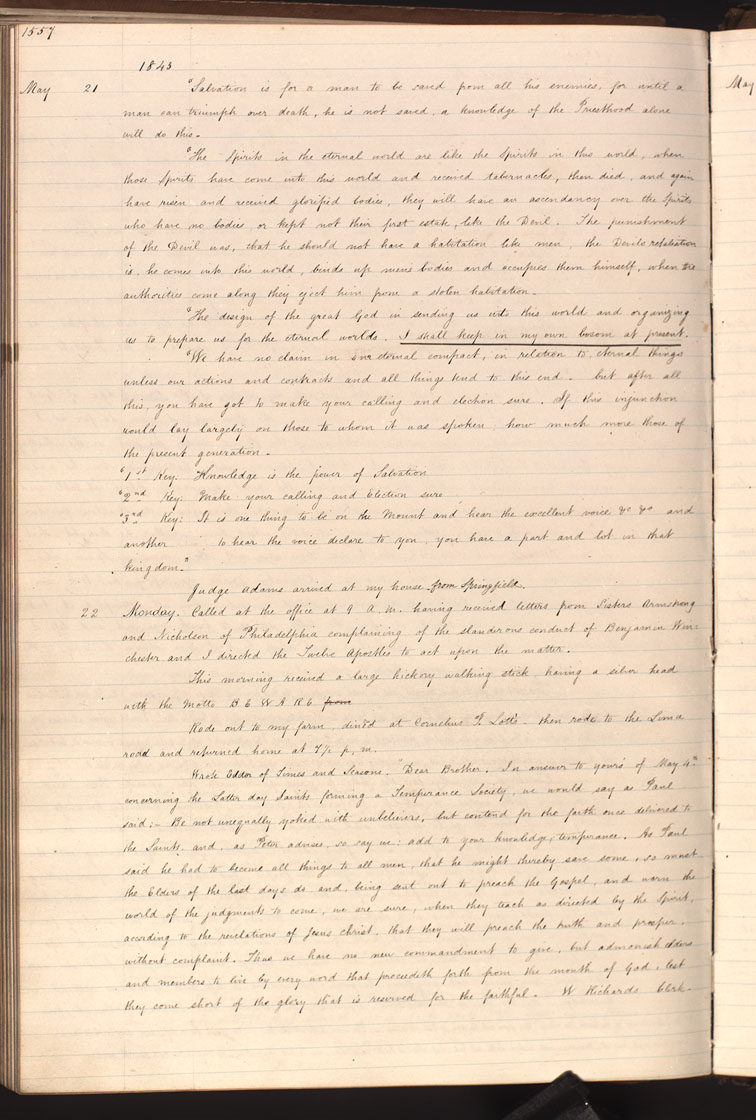 1557
1843
May 21 "Salvation is for a man to be saved from all his enemies, for until a
man can triumph over death, he is not saved, a knowledge of the Priesthood alone
will do this.
"The Spirits in the eternal world are like the Spirits in this world, when
those Spirits have come into this world and received tabernacles, then died, and again
have risen and received glorified bodies, they will have an ascendancy over the Spirits
who have no bodies, or kept not their first estate, like the Devil. The punishment
of the Devil was, that he should not have a habitation like men, the Devils retaliation
is, he comes into this world, binds up mens bodies and occupies them himself, when the
authorities come along they eject him from a stolen habitation.
"The design of the great God in sending us into this world and organizing
us to prepare us for the eternal worlds. I shall keep in my own bosom at present.
"We have no claim in our eternal compact, in relation to eternal things
unless our actions and contracts and all things tend to this end. but after all
this, you have got to make your calling and election sure. If this injunction
would lay largely on those to whom it was spoken, how much more those of
the present generation.
"1st Key: Knowledge is the power of Salvation
"2nd Key: Make your calling and Election sure
"3rd Key: It is one thing to be on the Mount and hear the excellent voice &c &c and
another to hear the voice declare to you, you have a part and lot in that
kingdom."
Judge Adams arrived at my house from Springfield.
22 Monday. Called at the office at 9 A.M. having received letters from Sisters Armstrong
and Nicholson of Philadelphia complaining of the slanderous conduct of Benjamin Win-
chester and I directed the Twelve Apostles to act upon the matter.
This morning received a large hickory walking stick, having a silver head
with the Motto BEWARE from
Rode out to my farm, din'd at Cornelius P. Lott's. then rode to the Lima
road and returned home at 7½ p.m.
Wrote Editor of Times and Seasons. "Dear Brother. In answer to yours of May 4th
concerning the Latter day Saints forming a Temperance Society, we would say as Paul
said:– Be not unequally yoked with unbelievers, but contend for the faith once delivered to
the Saints, and, as Peter advises, so say we: add to your knowledge, temperance. As Paul
said he had to become all things to all men, that he might thereby save some, so must
the Elders of the last days do, and, being sent out to preach the Gospel, and warn the
world of the judgments to come, we are sure, when they teach as directed by the Spirit,
according to the revelations of Jesus christ, that they will preach the truth and prosper,
without complaint. Thus we have no new commandment to give, but admonish elders
and members to live by every word that proceedeth forth from the mouth of God, lest
they come short of the glory that is reserved for the faithful. W Richards Clerk.
May